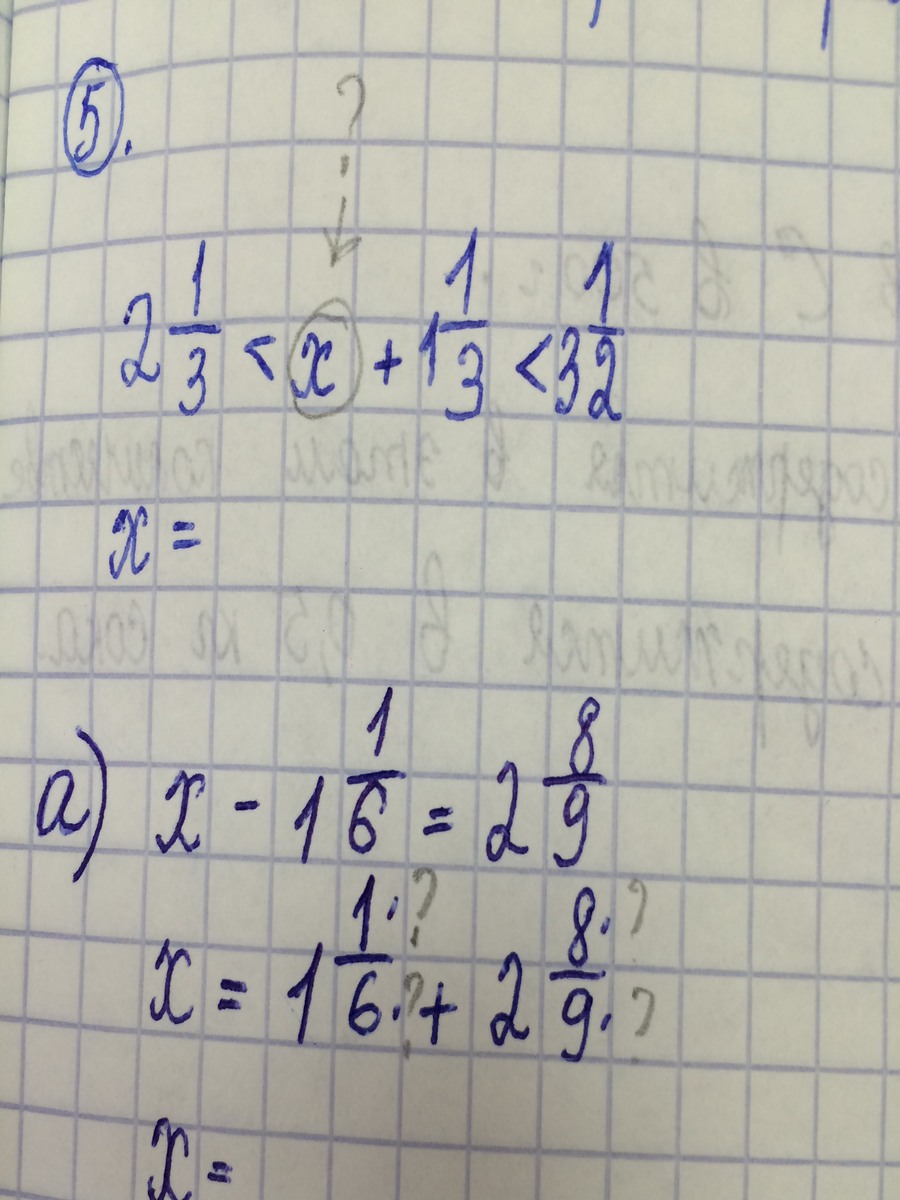 5.
?
2 1/3 < x + 1 1/3 < 3 1/2
x =
а) x - 1 1/6 = 2 8/9
x = 1 1·?/6·? + 2 8·?/9·?
x =